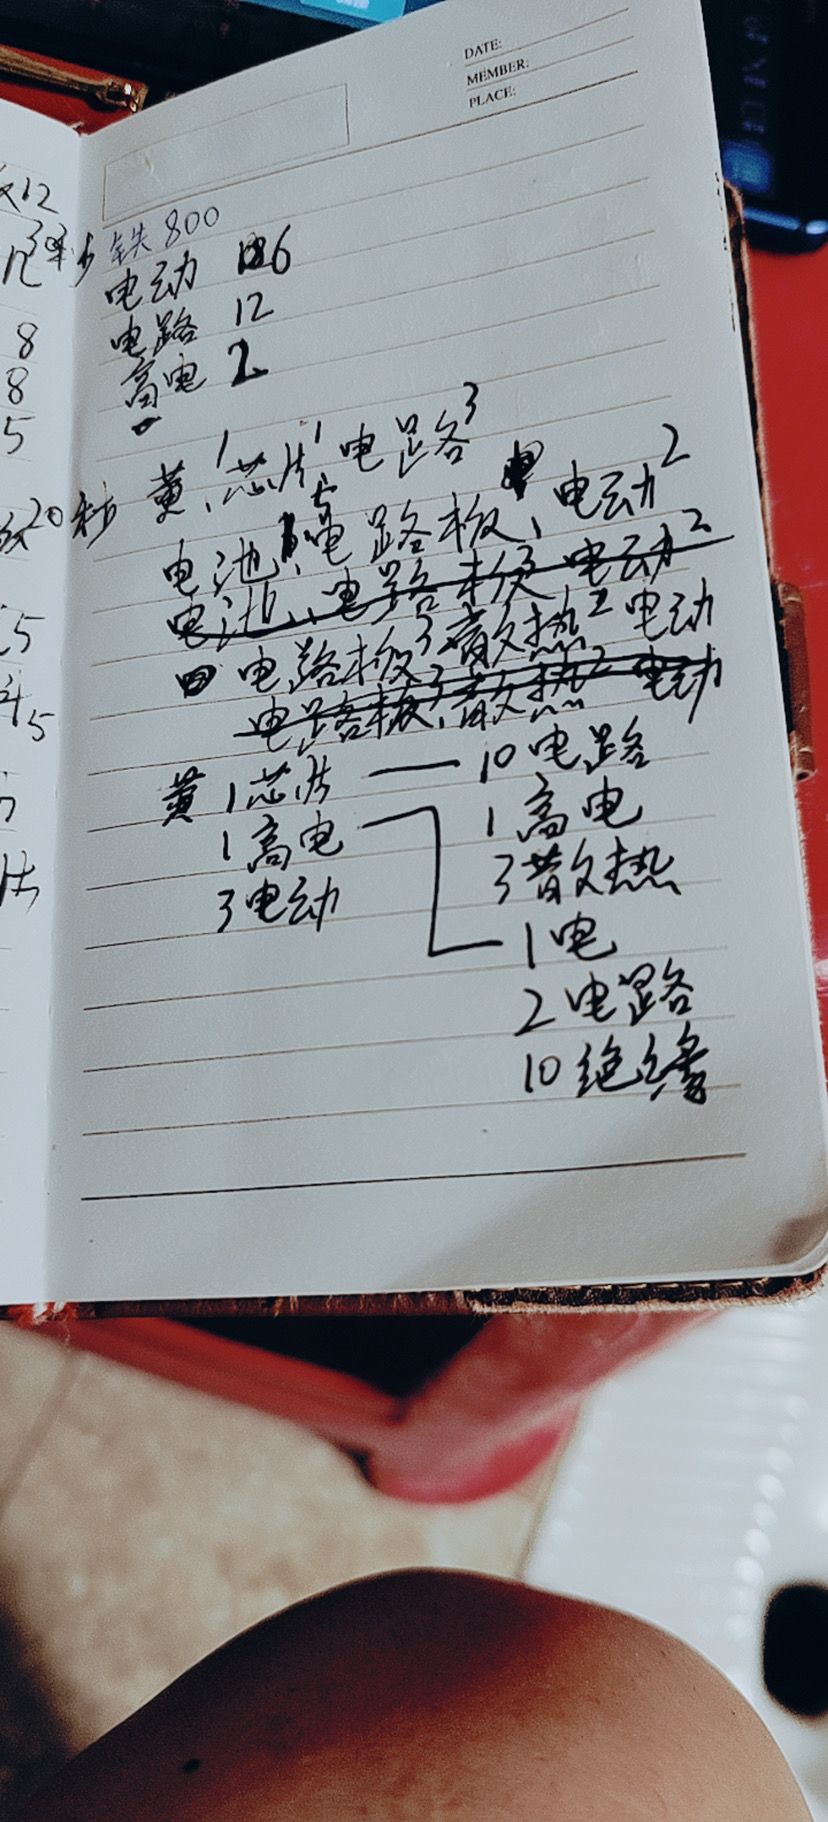 DATE:
MEMBER:
PLACE:
铁800
电动 6
电路 12
高电 2
黄1、芯片1 电路3
电池1、电路板5、电动2
电池1、电路板3 电动2
电路板3 散热2 电动
电路板3、散热2 电动
黄 1芯片 — 10电路
1高电 1高电
3电动 3散热
1电
2电路
10绝缘
12
8
8
5
20秒
5
5